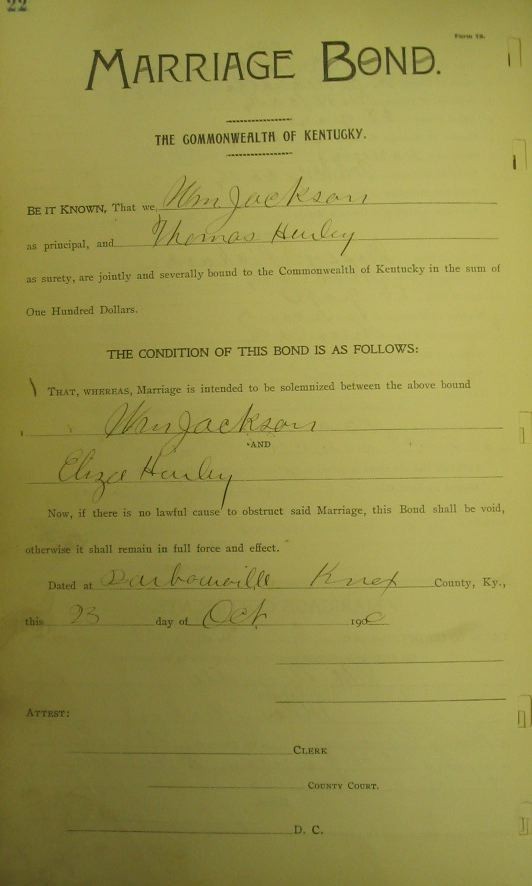 22
Form 18.
MARRIAGE BOND.
THE COMMONWEALTH OF KENTUCKY.
BE IT KNOWN, That we, Wm Jackson
as principal, and Thomas Hurley
as surety, are jointly and severally bound to the Commonwealth of Kentucky in the sum of
One Hundred Dollars.
THE CONDITION OF THIS BOND IS AS FOLLOWS:
THAT, WHEREAS, Marriage is intended to be solemnized between the above bound
Wm Jackson
AND
Eliza Hurley
Now, if there is no lawful cause to obstruct said Marriage, this Bond shall be void,
otherwise it shall remain in full force and effect.
Dated at Barbourville Knox County, Ky.,
this 23 day of Oct 190
ATTEST:
CLERK
COUNTY COURT.
D. C.